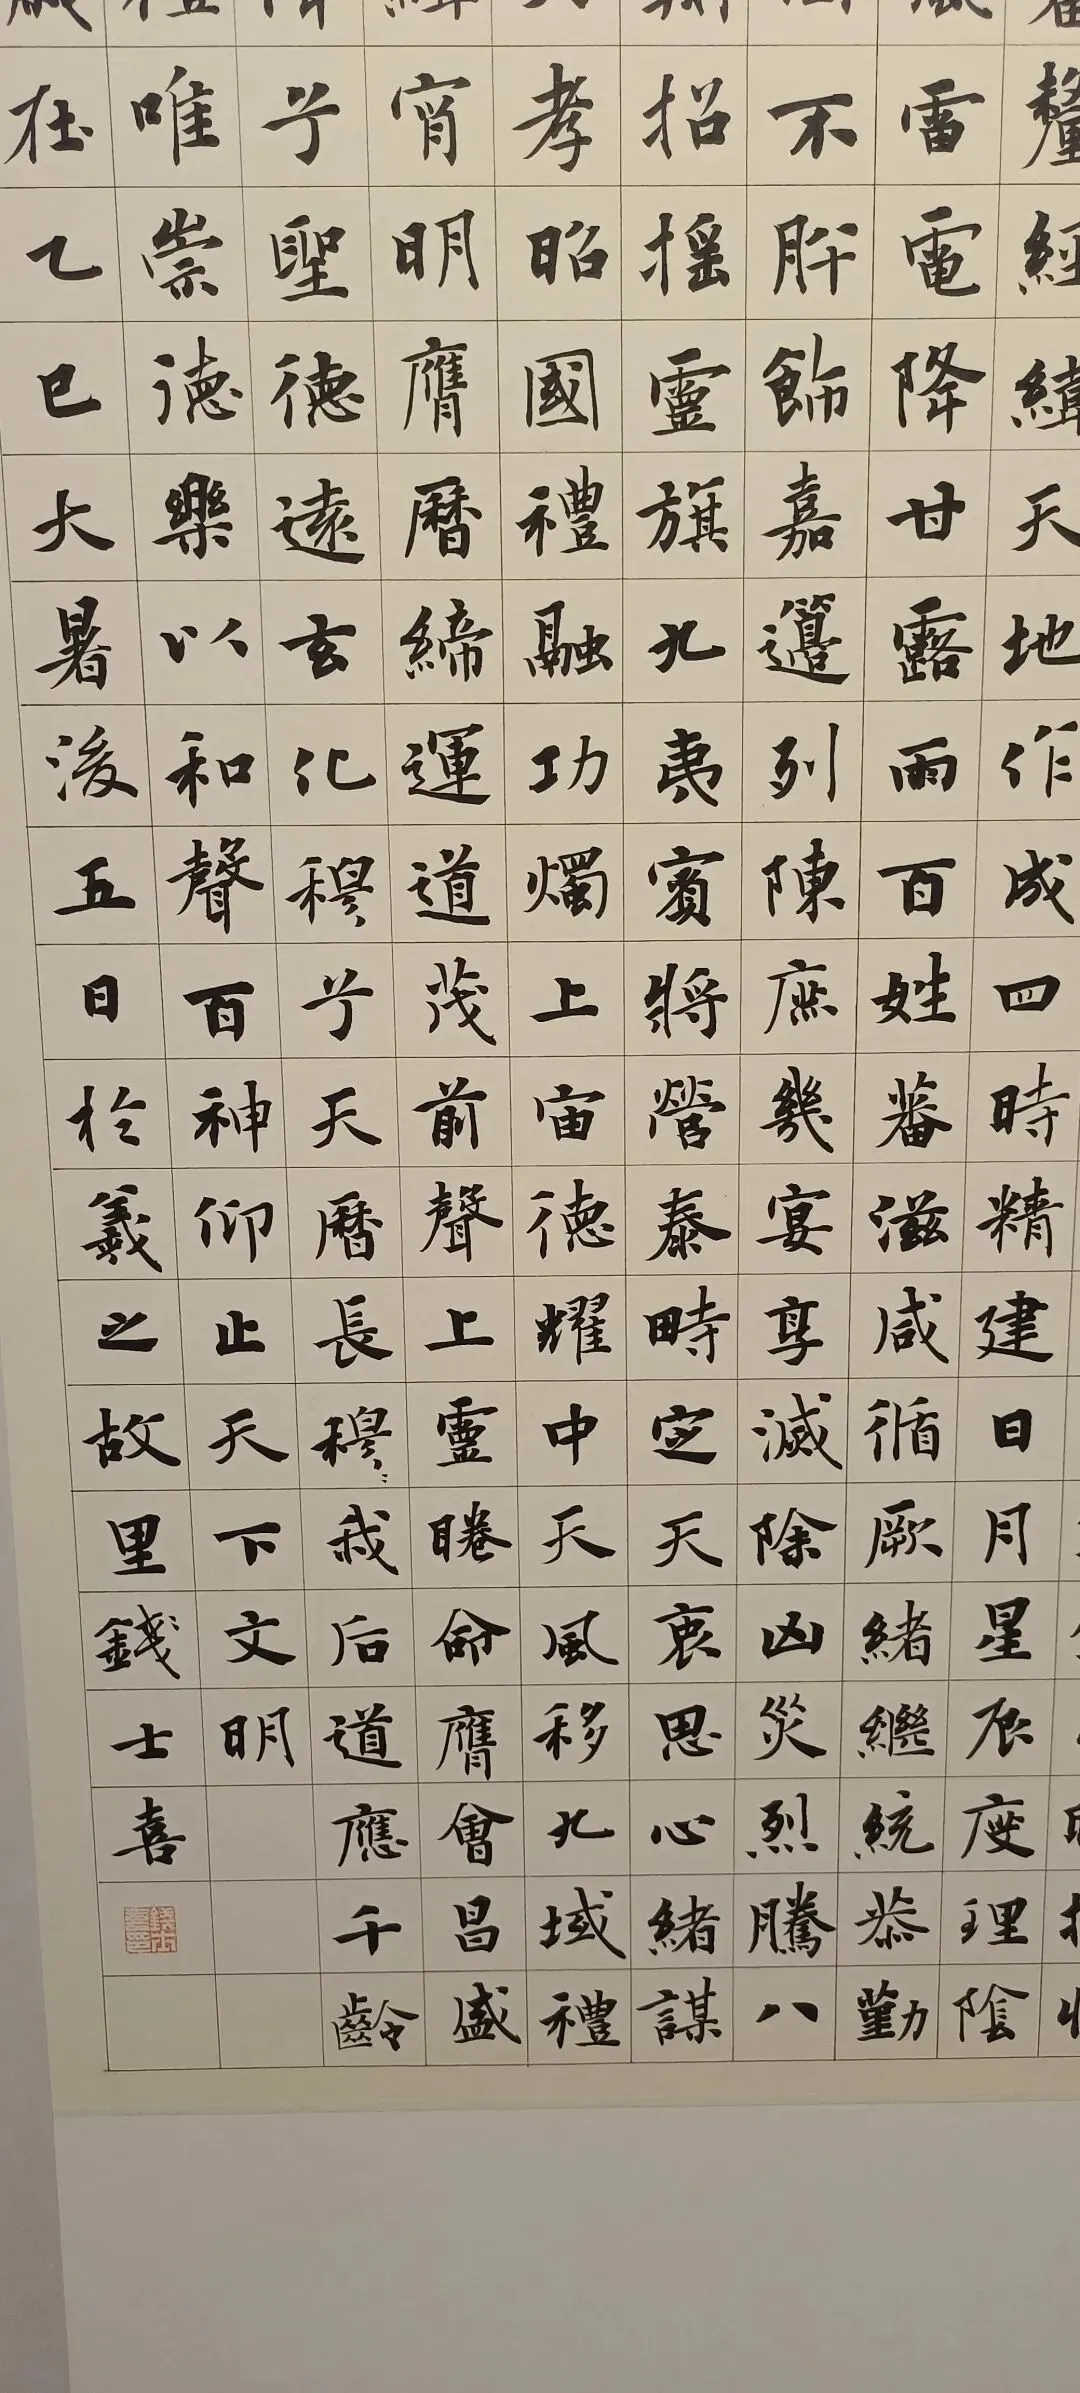 釐經緯天地作成四時精建日月星辰度理陰
雷電降甘露雨百姓蕃滋咸循厥緒繼統恭勤
不肸飾嘉籩列陳庶幾宴享滅除凶災烈騰八
招搖靈旗九夷賓將營泰畤定天衷思心緒謀
孝昭國禮融功燭上宙德耀中天風移九域禮
宵明膺曆締運道茂前聲上靈睠命膺會昌盛
兮聖德遠玄化穆兮天曆長穆〻我后道應千齡
唯崇德樂以和聲百神仰止天下文明
在乙巳大暑後五日於羲之故里錢士喜